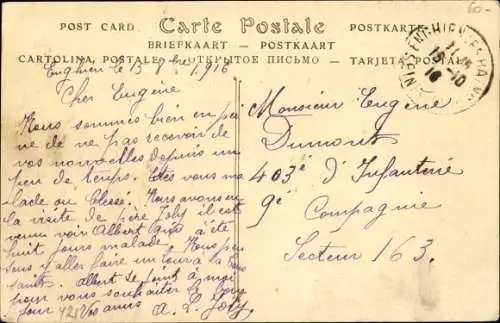 POST CARD
Carte Postale
POSTKARTE
BRIEFKAART — POSTKAART
CARTOLINA POSTALE — ОТКРЫТОЕ ПИСЬМО — TARJETA POSTAL
ENGHIEN-LES-BAINS
15-10
16
Enghien le 13 8bre 1916
Cher Eugène
Nous sommes bien en pei
ne de ne pas recevoir de
vos nouvelles depuis un
peu de temps. Êtes vous ma
lade ou blessé. Nous avons eu
la visite de père Joly il est
venu voir Albert qui a été
huit jours malade. Nous pen
sons y aller faire un tour à la Tous
saint. Albert se joint à moi
pour vous souhaiter le bon
jour Vos amis A. L. Joly
Monsieur Eugène
Dumont
403e d'Infanterie
9e Compagnie
Secteur 163.